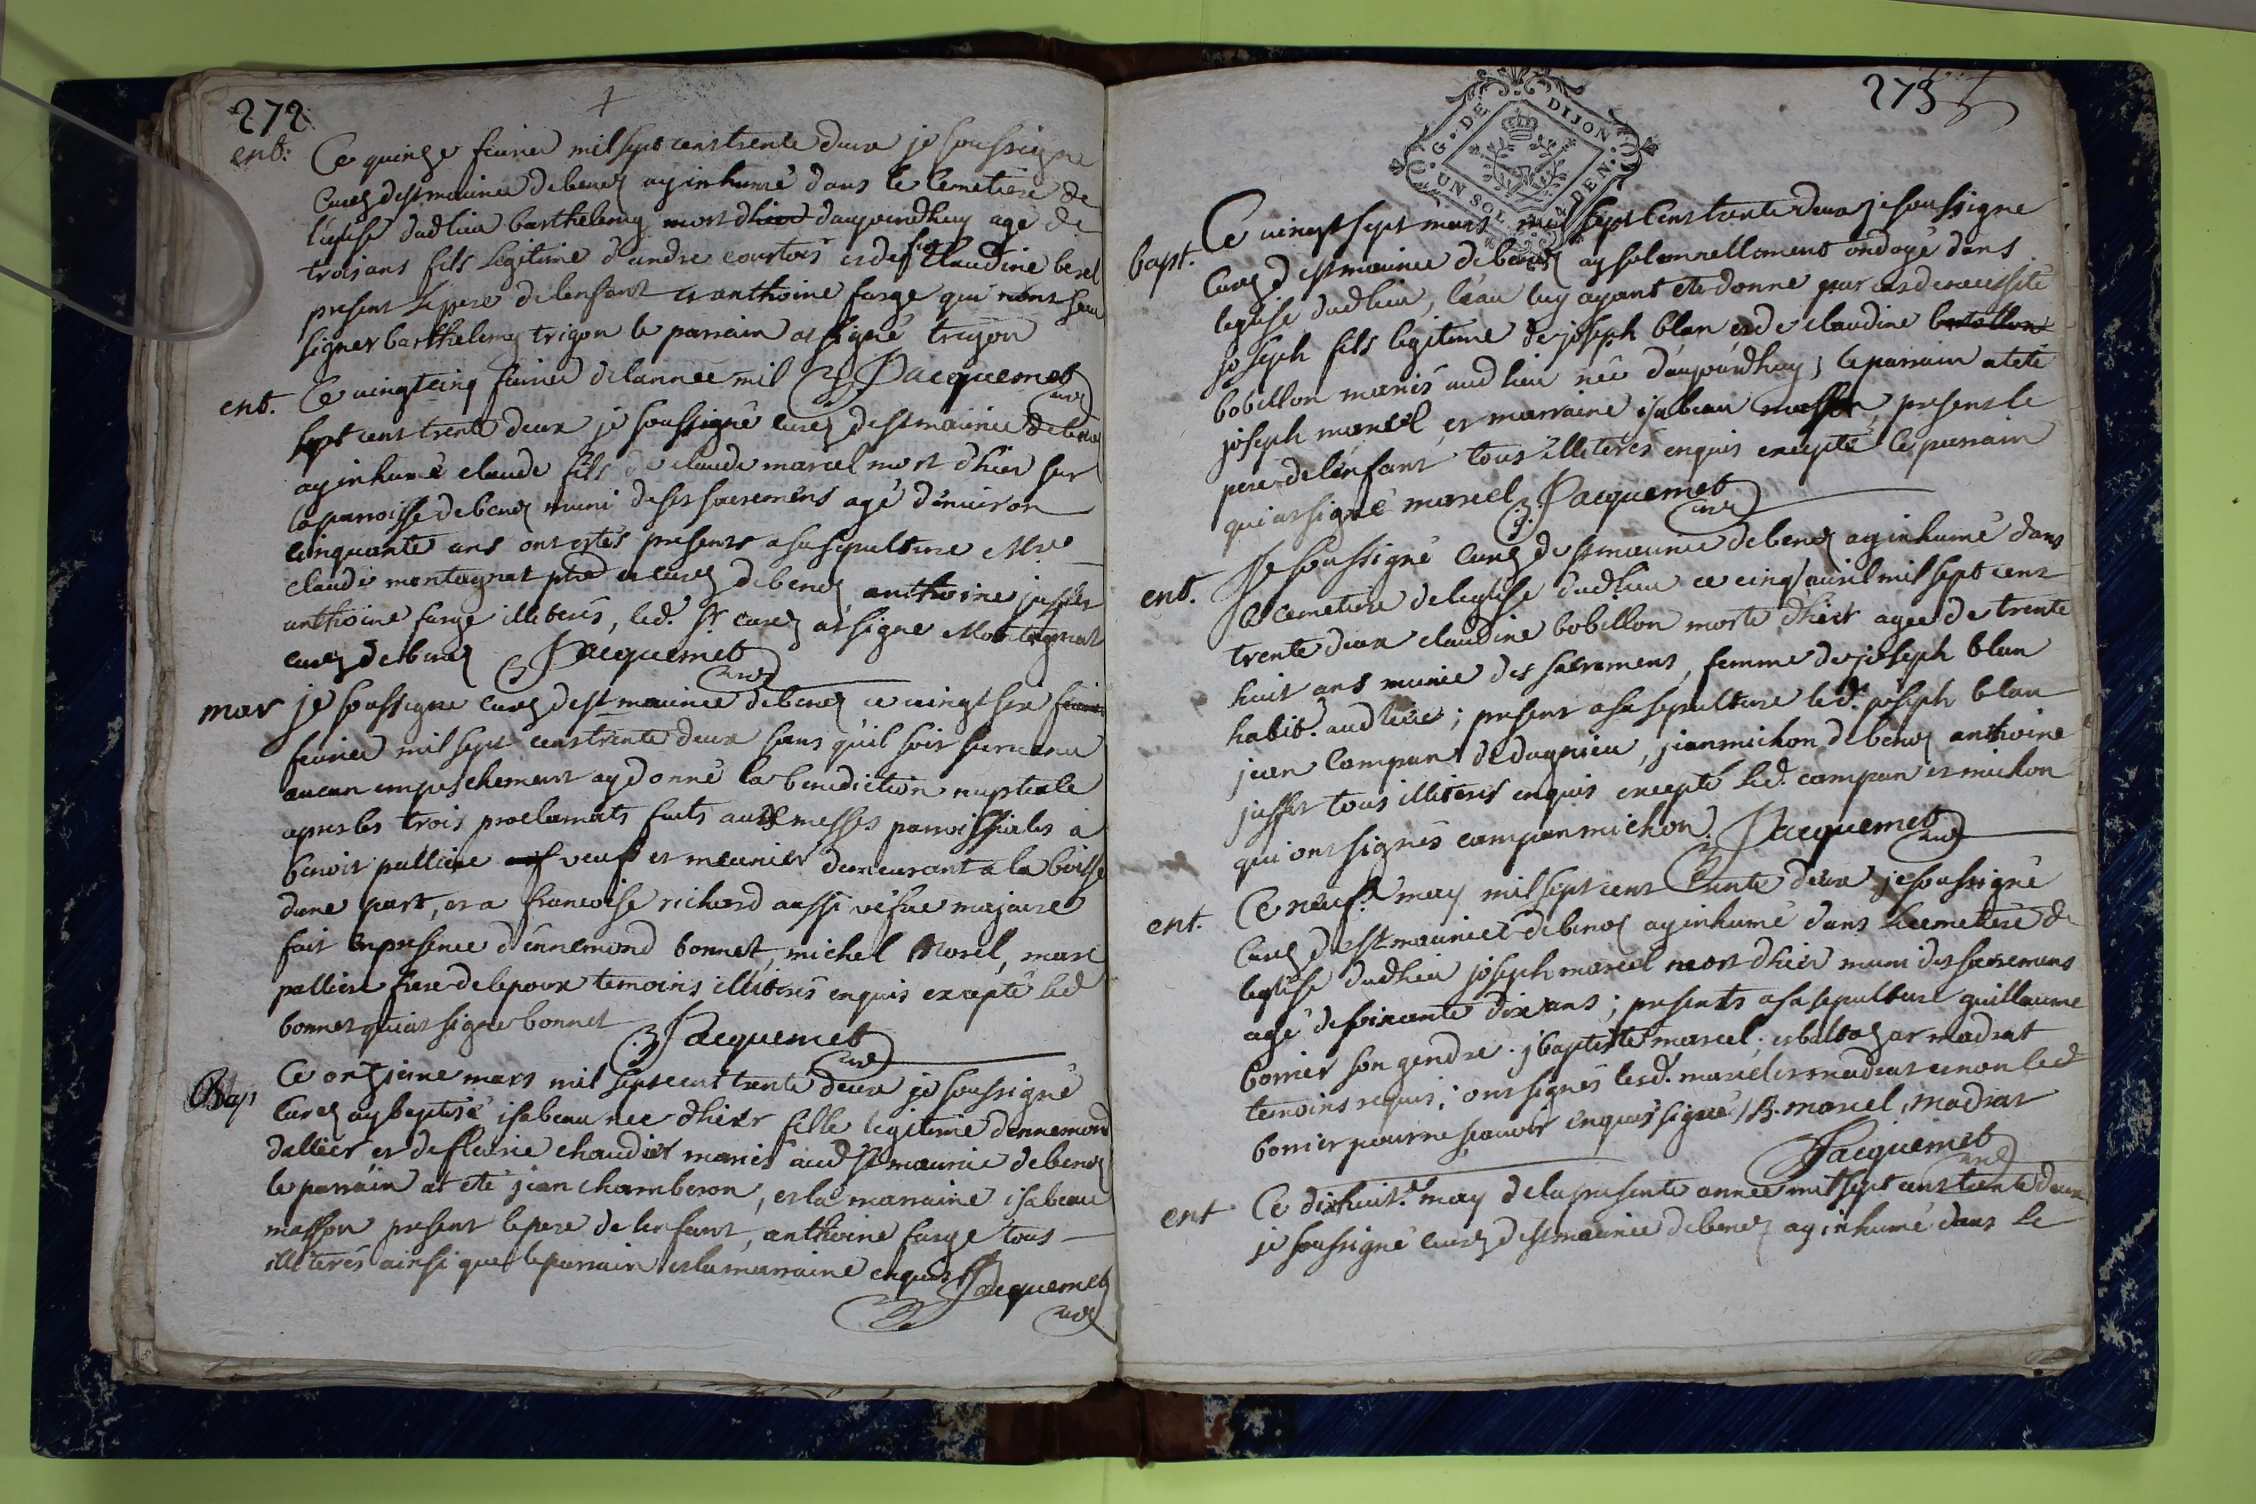 272
ent: Ce quinze feurier mil sept cens trente deux je soussigne
Curez de st maurice de beinoz ay inhumé dans le Cemetiere de
l'eglise dud lieu barthelemy mort d'hier d'aujourdhuy agé de
trois ans fils Legitime d'andre courtois et de fue Claudine berel
present Le pere de lenfant et anthoine farge qui n'ont sceu
signer barthelemy trigon le parrain at signé trigon
Jacquemet curé
ent. Ce vingt cinq feurier de lannée mil
sept cent trente deux je soussigné curez de st maurice de beinoz
ay inhumé claude fils de claude marcel mort d'hier sur
la paroisse de beinoz muni de ses sacremens agé d'enuiron
cinquante ans ont estés presents a sa sepulture Mre
claude montagnat ptre et curez de beinoz anthoine jusser
anthoine farge illiterés, led. sr. curez at signe Montagnat
curez de beinoz Jacquemet curé
mar je soussigne curez de st maurice de beinoz ce vingt six
feurier mil sept cens trente deux sans qu'il soit suruenu
aucun empeschement ay donné la benediction nuptiale
apres les trois proclamats faits aux messes paroissiales à
benoit palliere veuf et meunier demeurant a la boisse
dune part, et a francoise richard aussi vefue majeure
fait en presence d'ennemond bonnet, michel Morel, marc
palliere frere de lepoux temoins illiterés enquis excepté led
bonnet qui at signé bonnet Jacquemet curé
Bap Ce onzieme mars mil sept cent trente deux je soussigné
Curez ay beptisé isabeau née d'hier fille legitime d'ennemond
dallier et de fleurie chaudier mariés aud st maurice de beinoz
le parrain at eté jean chamberon, et la marraine isabeau
masson present le pere de lenfant, anthoine farge tous
illiterés ainsi que le parrain et la marraine enquis Jacquemet
curé
273
G. DE DIJON
UN SOL
bapt. Ce vingt sept mars mil sept Cens trente deux je soussigne
Curez de st maurice de beinoz ay solemnellement ondoyé dans
leglise dud lieu, l'eau luy ayant ete donné par cas de necessité
joseph fils legitime de joseph blan et de claudine
bobillon mariés aud lieu né d'aujourdhuy, le parrain at eté
joseph marcel, et marraine isabeau masson, present le
pere de lenfant tous illiterés enquis excepté le parrain
qui at signé marcel Jacquemet curé
ent. Je soussigné Curez de st maurice de beinoz ay inhumé dans
le cemetiere de leglise dud lieu ce cinq auril mil sept cent
trente deux claudine bobillon morte d'hier agee de trente
huit ans munie des sacremens, femme de joseph blan
habit. aud lieu; present a sa sepulture led. joseph blan
jean compan de dagnieu, jean michon de beinoz anthoine
jusser tous illiterés enquis excepté led. compan et michon
qui ont signés compan michon Jacquemet curé
ent. Ce neuf may mil sept cent trente deux je soussigné
Curez de st maurice de beinoz ay inhumé dans le cemetiere de
leglise dud lieu joseph marcel mort d'hier muni des sacremens
agé de soixante dix ans; presents a sa sepulture guillaume
borrier son gendre. j baptiste marcel, et baltazar madrat
temoins requis; ont signés lesd. marcel et madrat et non led
borrier pour ne sçauoir enquis signé J B. marcel, madrat
Jacquemet curé
ent Ce dixhuit may de la presente année mil sept cens trente deux
je soussigné curez de st maurice de beinoz ay inhumé dans le